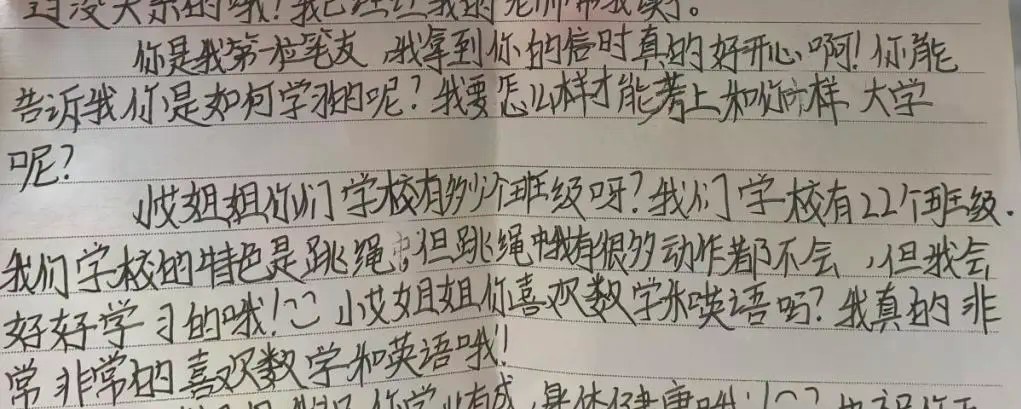 没关系的哦！我已经让我的老师帮我读了。
你是我第一位笔友，我拿到你的信时真的好开心啊！你能
告诉我你是如何学习的呢？我要怎么样才能考上和你一样大学
呢？
小艾姐姐你们学校有多少个班级呀？我们学校有22个班级.
我们学校的特色是跳绳，但跳绳中我有很多动作都不会，但我会
好好学习的哦！小艾姐姐你喜欢数学和英语吗？我真的非
常非常的喜欢数学和英语哦！
你学业有成，身体健康哦！